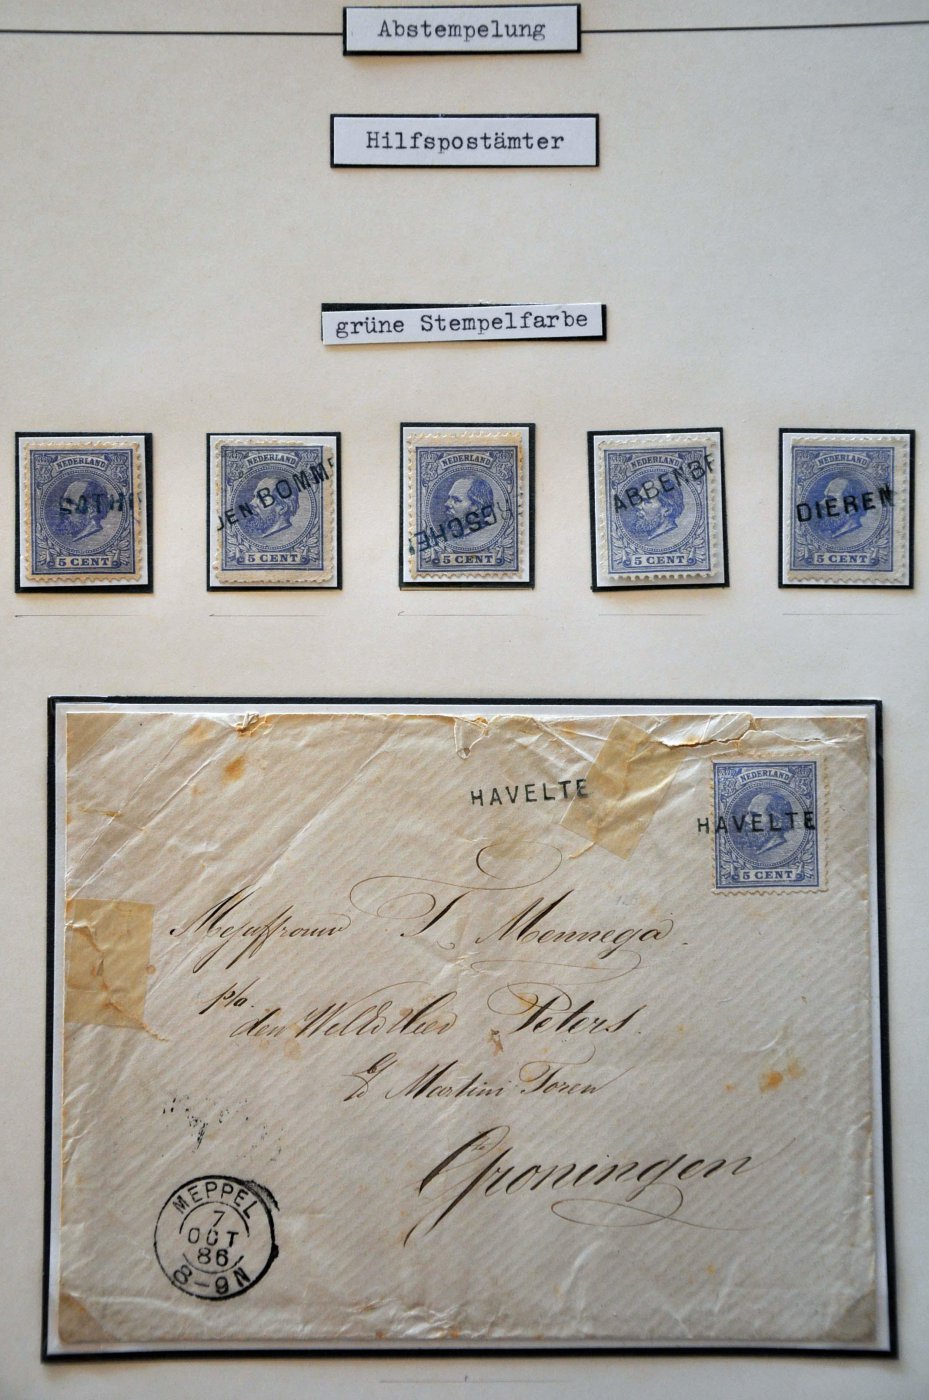 Abstempelung
Hilfspostämter
grüne Stempelfarbe
NEDERLAND
5 CENT
NEDERLAND
DEN BOMME
5 CENT
NEDERLAND
5 CENT
NEDERLAND
ABBENBR
5 CENT
NEDERLAND
DIEREN
5 CENT
HAVELTE
NEDERLAND
HAVELTE
5 CENT
Mejuffrouw T. Mennega.
p/a.
den Peters.
b/d Martini Toren
Groningen
MEPPEL
7
OCT
86
8-9N